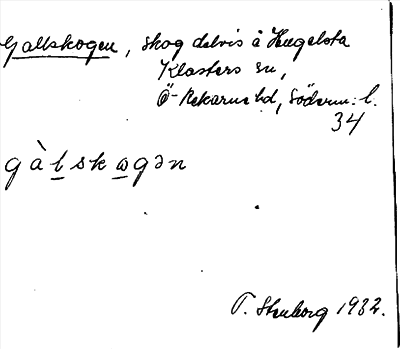 Gallskogen, skog delvis å Hugelsta
Klosters sn,
Ö-Rekarne hd, Söderm. l.
34
gàlskogən
T. Stenborg 1932.